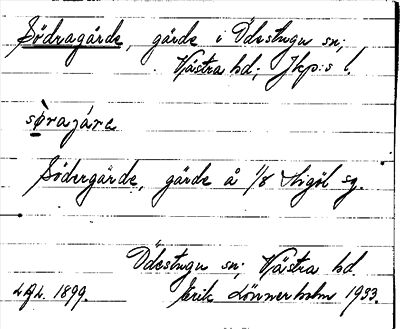 Södragärde, gärde i Ödestugu sn;
Västra hd; Jkp:s l.
sø̀ragáre
Södergärde, gärde å 1/8 Stigöl sg.
Ödestugu sn; Västra hd.
LGL. 1899. Erik Lönnerholm 1933.